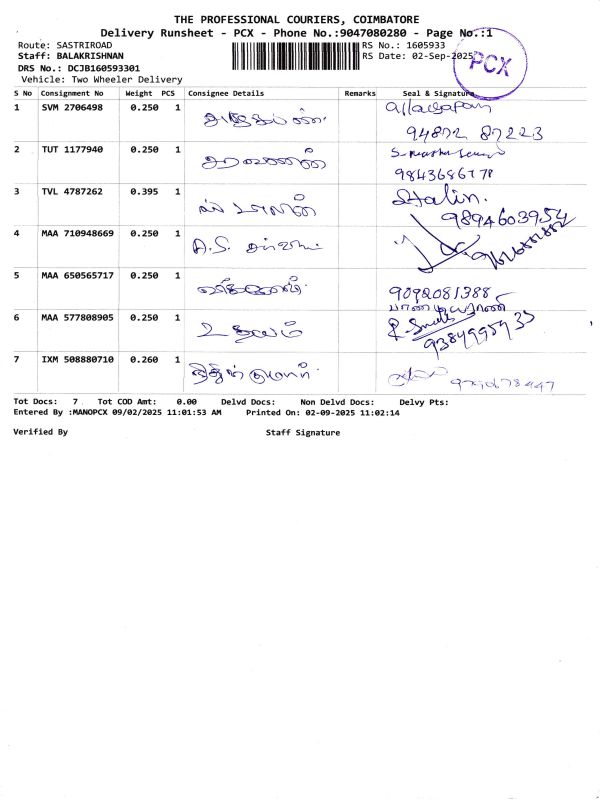 THE PROFESSIONAL COURIERS, COIMBATORE
Delivery Runsheet - PCX - Phone No.:9047080280 - Page No.:1
Route: SASTRIROAD
RS No.: 1605933
Staff: BALAKRISHNAN
RS Date: 02-Sep-2025
PCX
DRS No.: DCJB160593301
Vehicle: Two Wheeler Delivery
S No Consignment No Weight PCS Consignee Details Remarks Seal & Signature
1 SVM 2706498 0.250 1
94872 87223
2 TUT 1177940 0.250 1 சரவணன்
3 TVL 4787262 0.395 1 Stalin.
9894603954
4 MAA 710948669 0.250 1 A.S.
5 MAA 650565717 0.250 1 9092081388
6 MAA 577808905 0.250 1 உதயம்
7 IXM 508880710 0.260 1 நிதின் குமார்
Tot Docs: 7 Tot COD Amt: 0.00 Delvd Docs: Non Delvd Docs: Delvy Pts:
Entered By :MANOPCX 09/02/2025 11:01:53 AM Printed On: 02-09-2025 11:02:14
Verified By Staff Signature